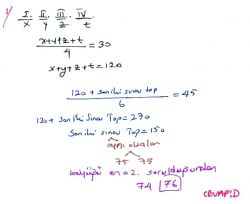 I. II. III IV
x y z t
x+y+z+t
4 = 30
x+y+z+t=120
120 + son iki sınav top
6 = 45
120 + son iki sınav Top = 270
Son iki sınav top = 150
aynı olsalar
75 75
en az sorulduğundan
74 76
CEVAP: D